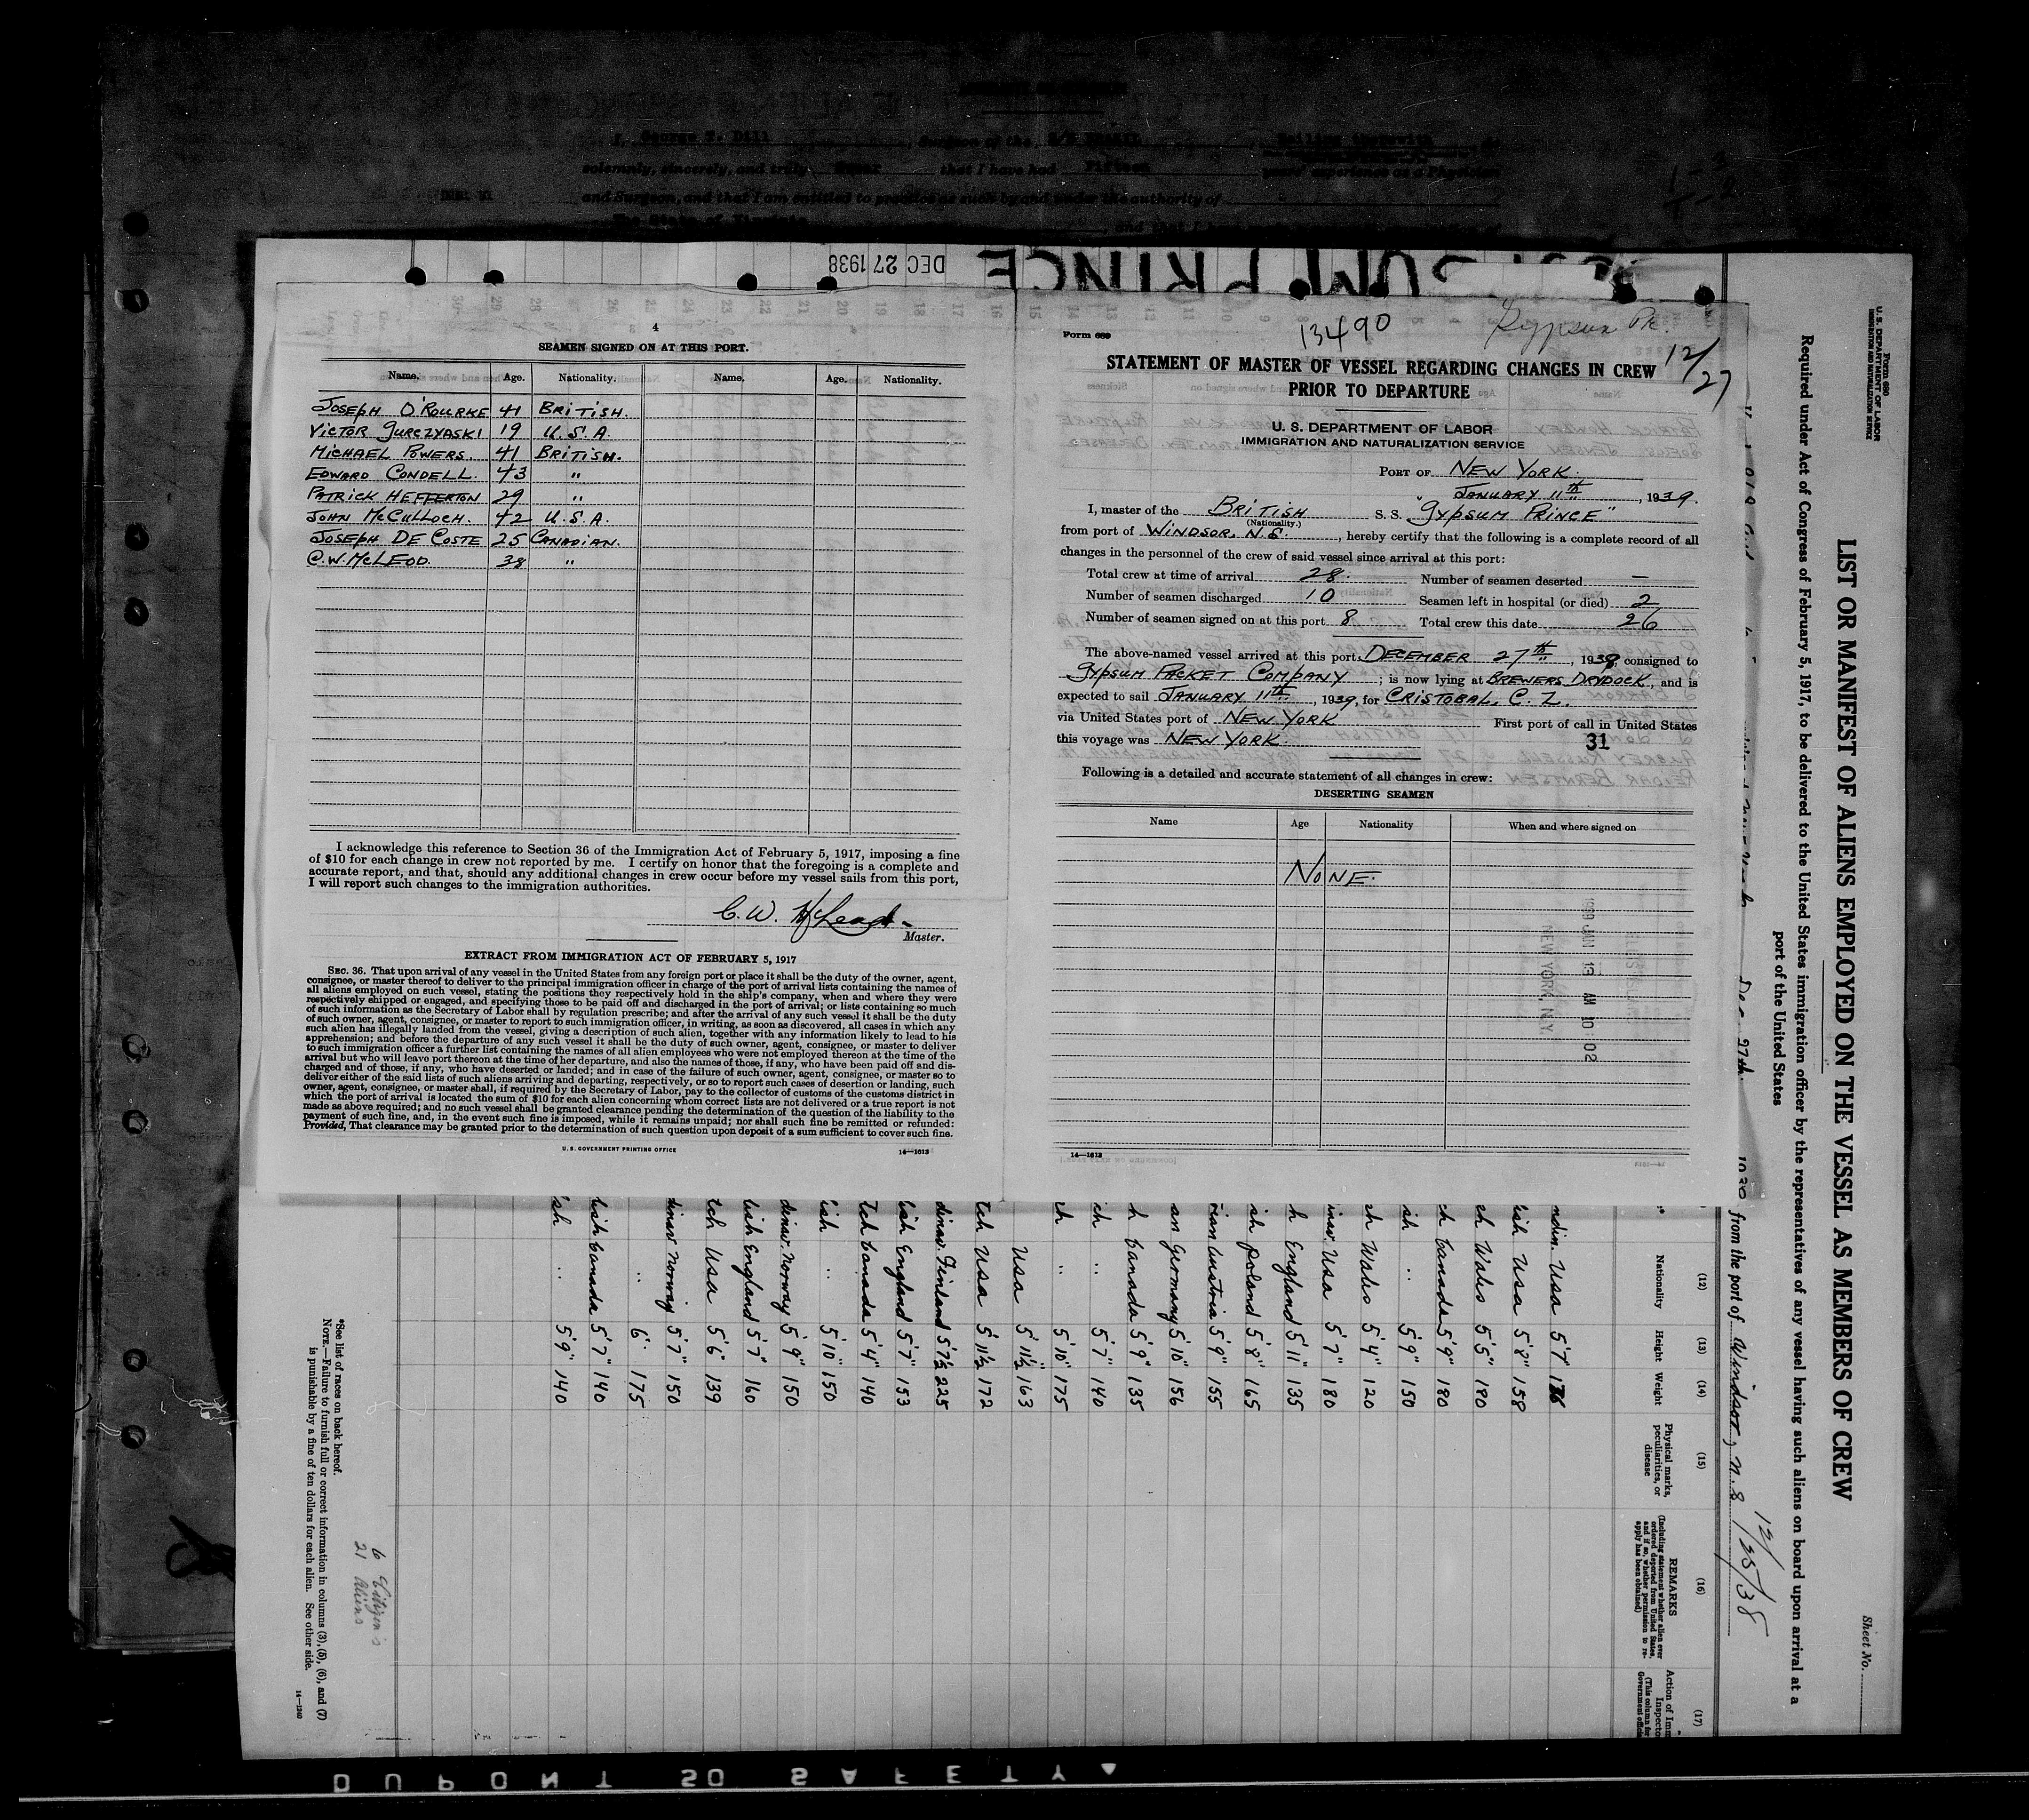 DEC 27 1938
4
SEAMEN SIGNED ON AT THIS PORT.
Name. Age. Nationality. Name. Age. Nationality.
JOSEPH O'ROURKE 41 BRITISH.
VICTOR GURCZYASKI 19 U.S.A.
MICHAEL POWERS. 41 BRITISH.
EDWARD CONDELL. 43 "
PATRICK HEFFERTON 29 "
JOHN McCULLOCH. 42 U.S.A.
JOSEPH DE COSTE 25 CANADIAN.
C.W. McLEOD. 38 "
I acknowledge this reference to Section 36 of the Immigration Act of February 5, 1917, imposing a fine
of $10 for each change in crew not reported by me. I certify on honor that the foregoing is a complete and
accurate report, and that, should any additional changes in crew occur before my vessel sails from this port,
I will report such changes to the immigration authorities.
C. W. McLeod
Master.
EXTRACT FROM IMMIGRATION ACT OF FEBRUARY 5, 1917
SEC. 36. That upon arrival of any vessel in the United States from any foreign port or place it shall be the duty of the owner, agent,
consignee, or master thereof to deliver to the principal immigration officer in charge of the port of arrival lists containing the names of
all aliens employed on such vessel, stating the positions they respectively hold in the ship's company, when and where they were
respectively shipped or engaged, and specifying those to be paid off and discharged in the port of arrival; or lists containing so much
of such information as the Secretary of Labor shall by regulation prescribe; and after the arrival of any such vessel it shall be the duty
of such owner, agent, consignee, or master to report to such immigration officer, in writing, as soon as discovered, all cases in which any
such alien has illegally landed from the vessel, giving a description of such alien, together with any information likely to lead to his
apprehension; and before the departure of any such vessel it shall be the duty of such owner, agent, consignee, or master to deliver
to such immigration officer a further list containing the names of all alien employees who were not employed thereon at the time of the
arrival but who will leave port thereon at the time of her departure, and also the names of those, if any, who have been paid off and dis-
charged and of those, if any, who have deserted or landed; and in case of the failure of such owner, agent, consignee, or master so to
deliver either of the said lists of such aliens arriving and departing, respectively, or so to report such cases of desertion or landing, such
owner, agent, consignee, or master shall, if required by the Secretary of Labor, pay to the collector of customs of the customs district in
which the port of arrival is located the sum of $10 for each alien concerning whom correct lists are not delivered or a true report is not
made as above required; and no such vessel shall be granted clearance pending the determination of the question of the liability to the
payment of such fine, and, in the event such fine is imposed, while it remains unpaid; nor shall such fine be remitted or refunded:
Provided, That clearance may be granted prior to the determination of such question upon deposit of a sum sufficient to cover such fine.
U. S. GOVERNMENT PRINTING OFFICE 14—1613
Form 689 13490 Gypsum Pr.
12/27
STATEMENT OF MASTER OF VESSEL REGARDING CHANGES IN CREW
PRIOR TO DEPARTURE
U. S. DEPARTMENT OF LABOR
IMMIGRATION AND NATURALIZATION SERVICE
PORT OF NEW YORK.
JANUARY 11th, 1939.
I, master of the BRITISH S. S. "GYPSUM PRINCE"
(Nationality.)
from port of WINDSOR, N.S., hereby certify that the following is a complete record of all
changes in the personnel of the crew of said vessel since arrival at this port:
Total crew at time of arrival 28. Number of seamen deserted —
Number of seamen discharged 10 Seamen left in hospital (or died) 2
Number of seamen signed on at this port 8 Total crew this date 26
The above-named vessel arrived at this port DECEMBER 27th, 1938, consigned to
GYPSUM PACKET COMPANY; is now lying at BREWERS DRYDOCK, and is
expected to sail JANUARY 11th, 1939, for CRISTOBAL, C. Z.
via United States port of NEW YORK First port of call in United States
this voyage was NEW YORK. 31
Following is a detailed and accurate statement of all changes in crew:
DESERTING SEAMEN
Name Age Nationality When and where signed on
NONE.
1939 JAN 13 AM 10:02
NEW YORK, N.Y.
14—1613
Form 680
U. S. DEPARTMENT OF LABOR
IMMIGRATION AND NATURALIZATION SERVICE
Sheet No.
LIST OR MANIFEST OF ALIENS EMPLOYED ON THE VESSEL AS MEMBERS OF CREW
Required under Act of Congress of February 5, 1917, to be delivered to the United States immigration officer by the representatives of any vessel having such aliens on board upon arrival at a
port of the United States
Dec. 27th. from the port of Windsor, N.S 12/25/38
(12) (13) (14) (15) (16) (17)
Nationality Height Weight Physical marks, peculiarities, or disease REMARKS
(Including statement whether alien ever ordered deported from United States, and if so, whether permission to re-apply has been obtained)
ndin. Usa 5'7" 176
lish Usa 5'8" 158
ch Wales 5'5" 180
ch Canada 5'9" 180
ish .. 5'9" 150
sh Wales 5'4" 120
inav. Usa 5'7" 180
h England 5'11" 135
ish Poland 5'8" 165
rian Austria 5'9" 155
an Germany 5'10" 156
h Canada 5'9" 135
ich .. 5'7" 140
ch .. 5'10" 175
Usa 5'11½" 163
tch Usa 5'11½ 172
dinav. Finland 5'7½ 225
lish England 5'7" 153
tch Canada 5'4" 140
ish .. 5'10" 150
dinav. Norway 5'9" 150
lish England 5'7" 160
tch Usa 5'6" 139
dinav Norway 5'7" 150
.. 6' 175
lish Canada 5'7" 140
ish .. 5'9" 140
6 Citizens
21 Aliens
*See list of races on back hereof.
NOTE.—Failure to furnish full or correct information in columns (3), (5), (6), and (7)
is punishable by a fine of ten dollars for each alien. See other side.
14—1240
DUPONT SO SAFETY